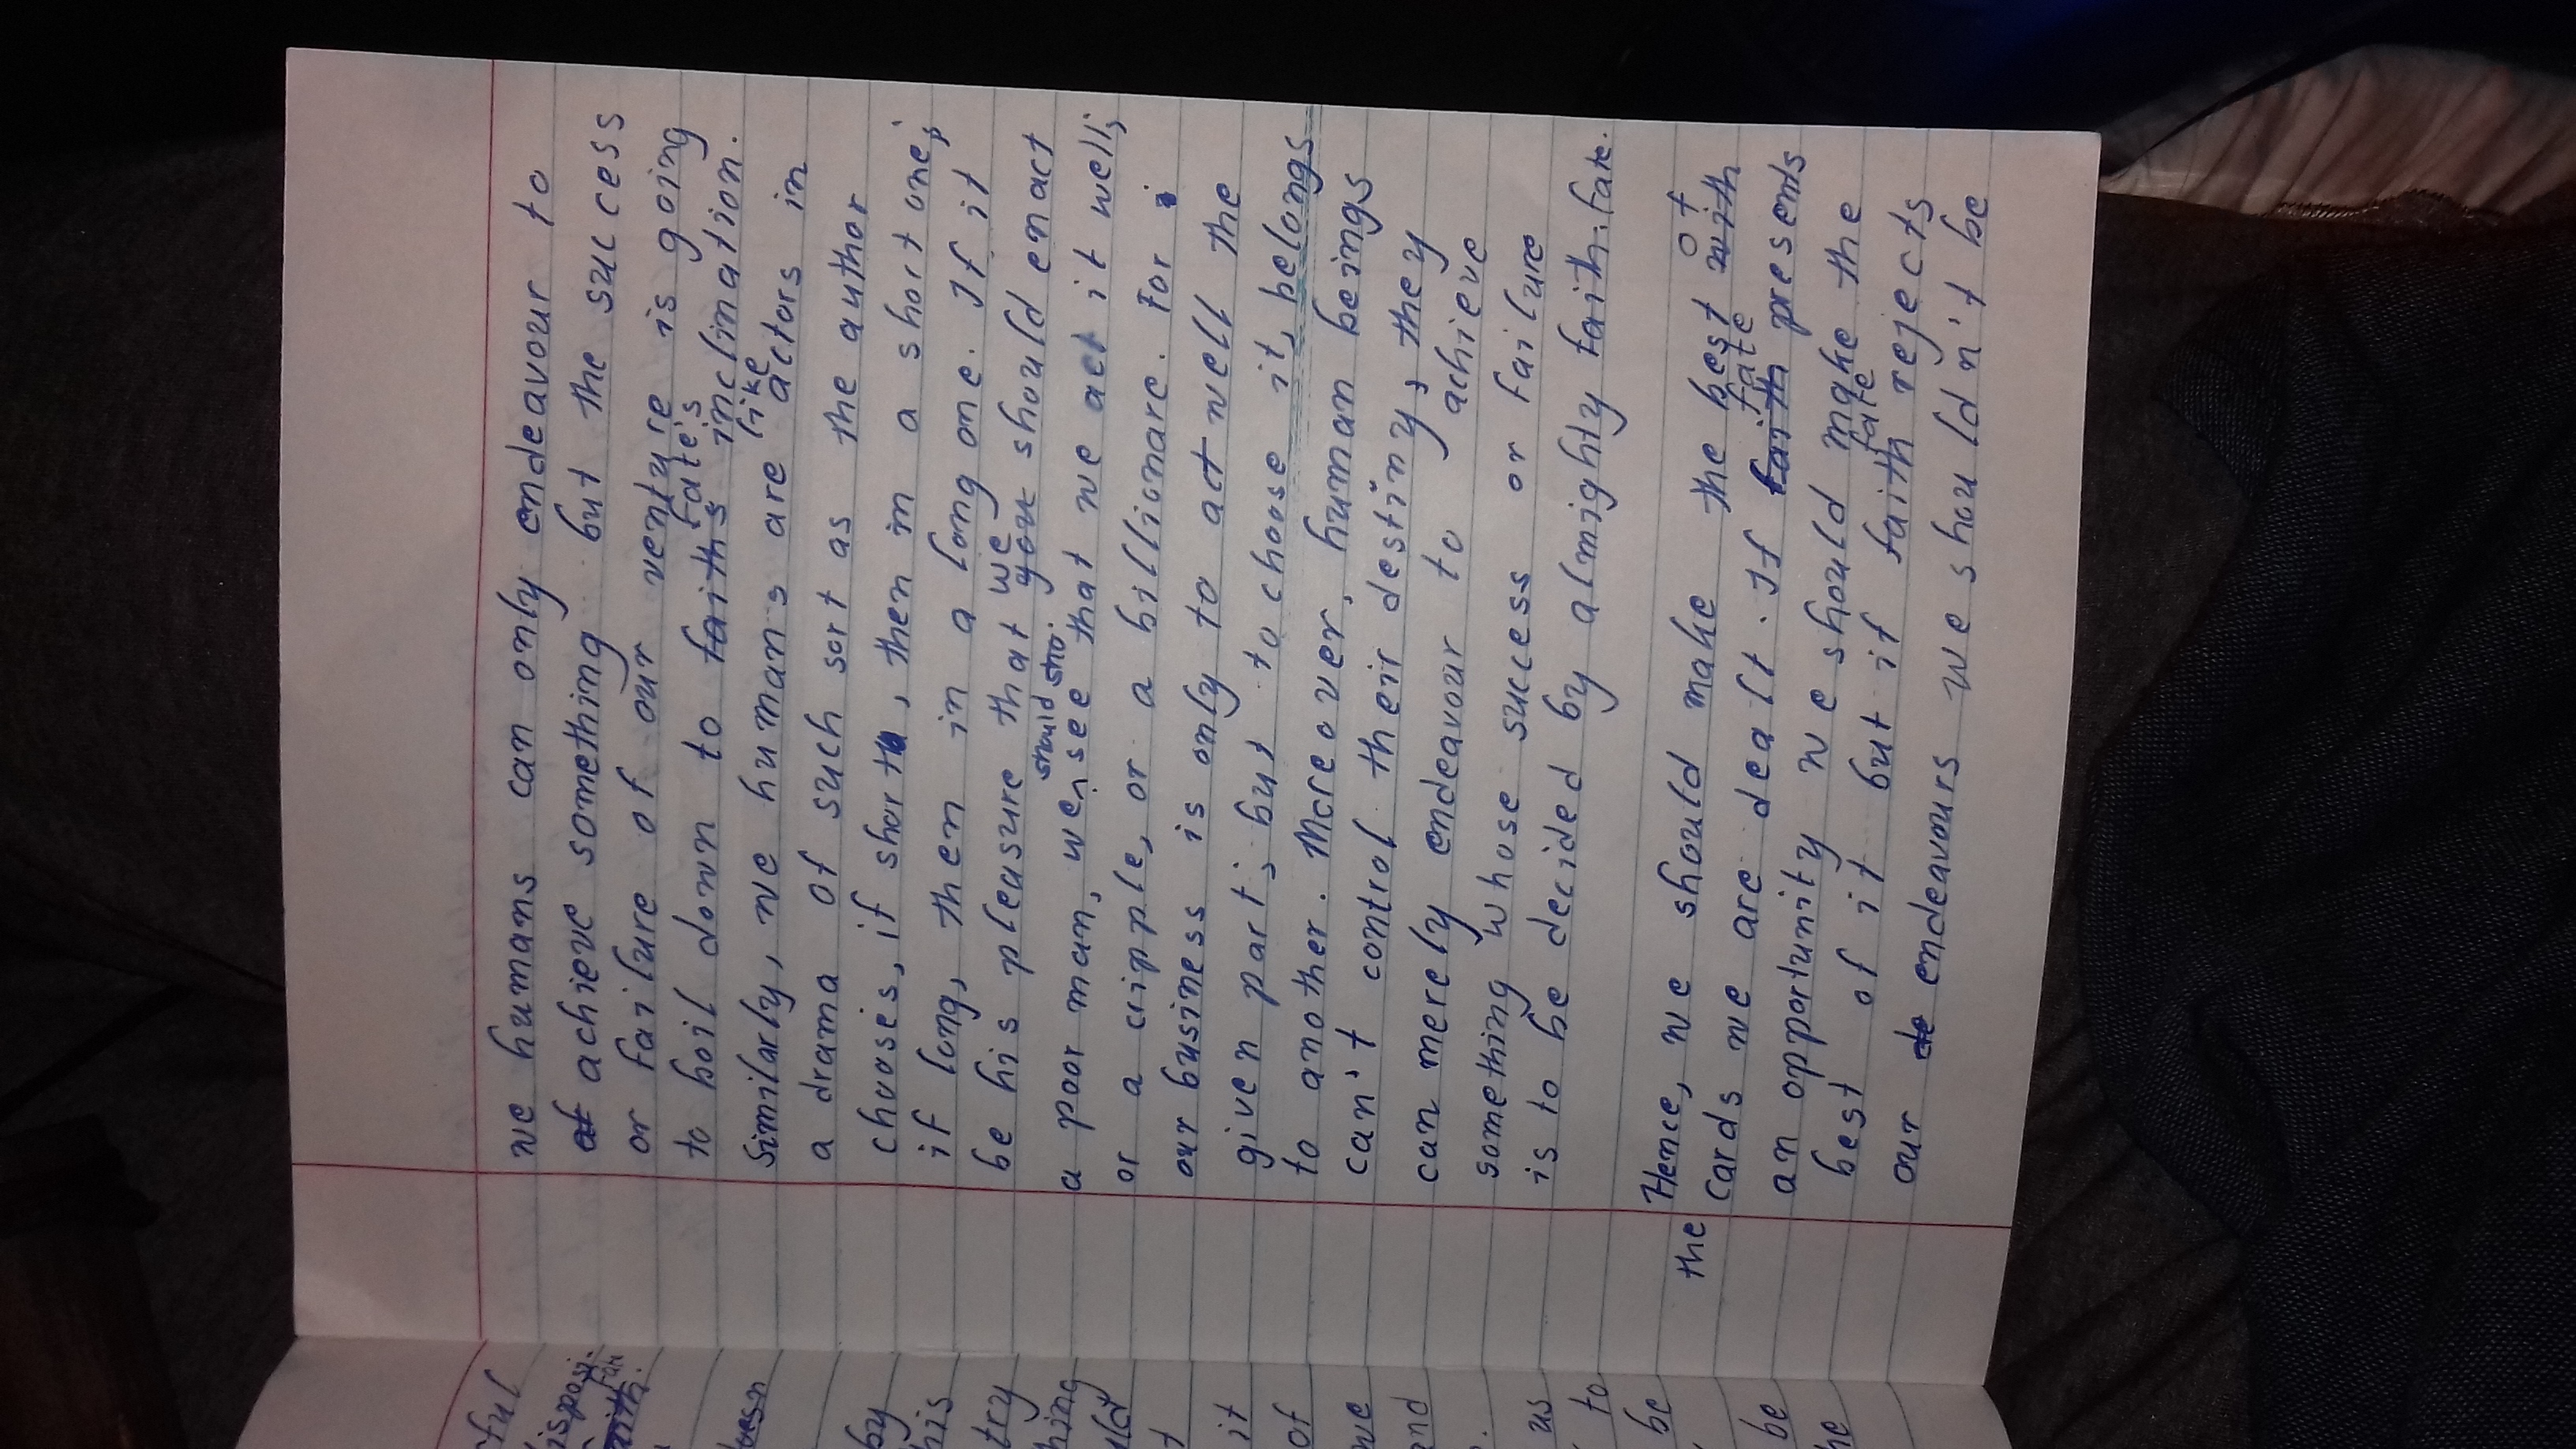 we humans can only endeavour to
at achieve something but the success
or failure of our venture is going
fate's
to boil down to faith's inclination.
like
Similarly, we human's are actors in
a drama of such sort as the author
chooses, if short, then in a short one;
if long, then in a long one. If it
we
be his pleasure that you should enact
should
a poor man, we, see that we act it well;
or a cripple, or a billionare. For
our business is only to act well the
given part; but to choose it, belongs
to another. Moreover, human beings
can't control their destiny, they
can merely endeavour to achieve
something whose success or failure
is to be decided by almighty faith. fate.
Hence, we should make the best of with
the cards we are dealt. If faith presents
fate
an opportunity we should make the
best of it but if faith rejects
fate
our de endeavours we shouldn't be
ful
ispos
with.
by
his
try
hing
uld
t
it
of
we
and
us
to
be
be
he